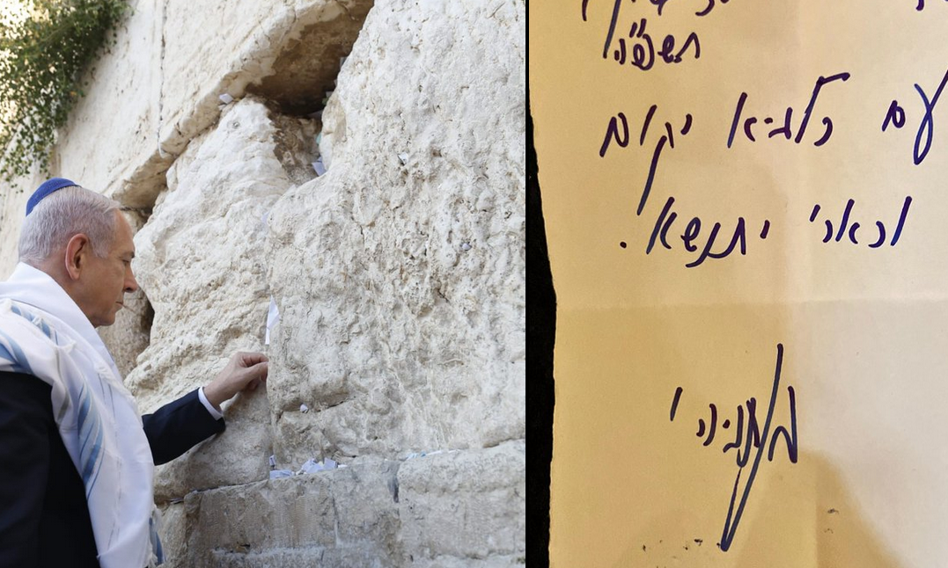 תשפ״ה
עם כלביא יקום
וכארי יתנשא.